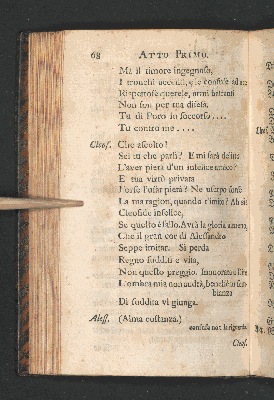 68 ATTO PRIMO.
Ma il timore ingegnoso,
I tronchi accenti, e le confuse ad arte
Rispettose querele, armi bastanti
Non son per tua difesa.
Tu di Poro in soccorso....
Tu contro me....
Cleof. Che ascolto!
Sei tu che parli? E mi sarà delitto
L'aver pietà d'un infelice amico?
È tua virtù privata
Forse l'usar pietà? Ne usurpo forse
La tua ragion, quando t'imito? Ah sia
Cleofide infelice,
Se questo è fallo. Avrà la gloria almeno,
Che il gran cor di Alessandro
Seppe imitar. Si perda
Regno sudditi e vita,
Non questo preggio. Innocente a Dite
L'ombra mia non andrà, benchè in sembianza
Di suddita vi giunga.
Aless. (Alma costanza.)
Cleof.